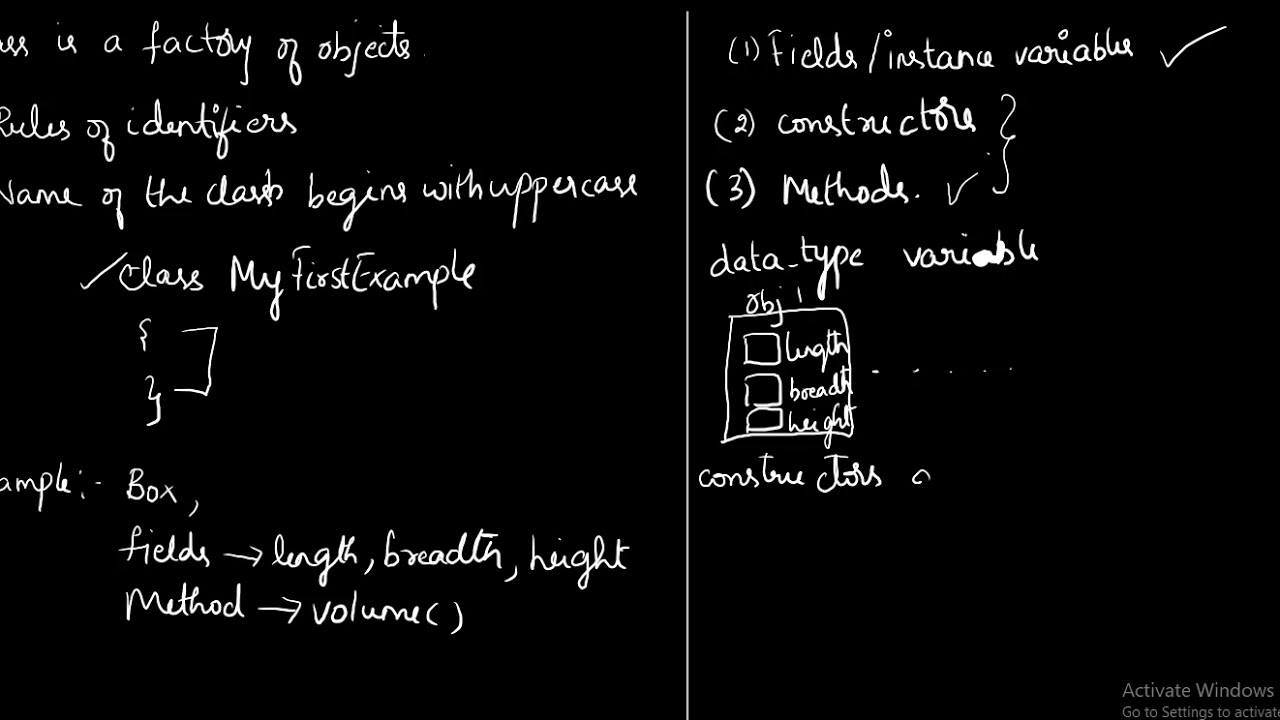 ss is a factory of objects.
Rules of identifiers
Name of the class begins with uppercase
✓ Class MyFirstExample
{
}
ample :- Box,
fields → length, breadth, height
Method → volume()
(1) Fields/instance variables ✓
(2) constructors }
(3) Methods. ✓
data_type variable
obj 1
length
breadth
height
constructors
Activate Windows
Go to Settings to activate